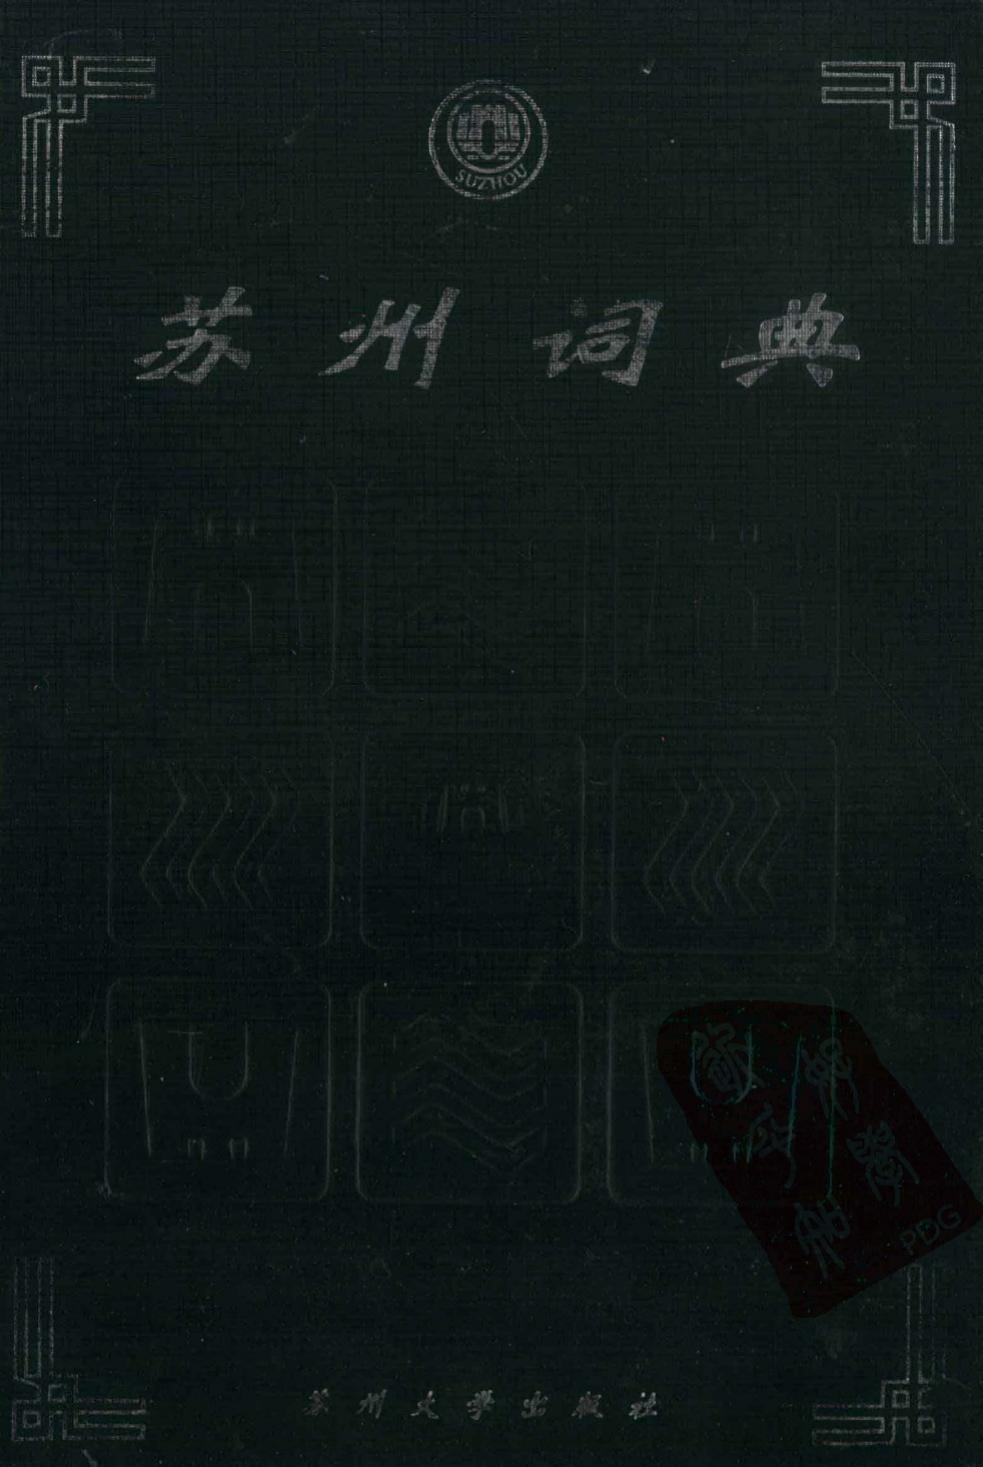 SUZHOU
苏州词典
PDG
苏州大学出版社